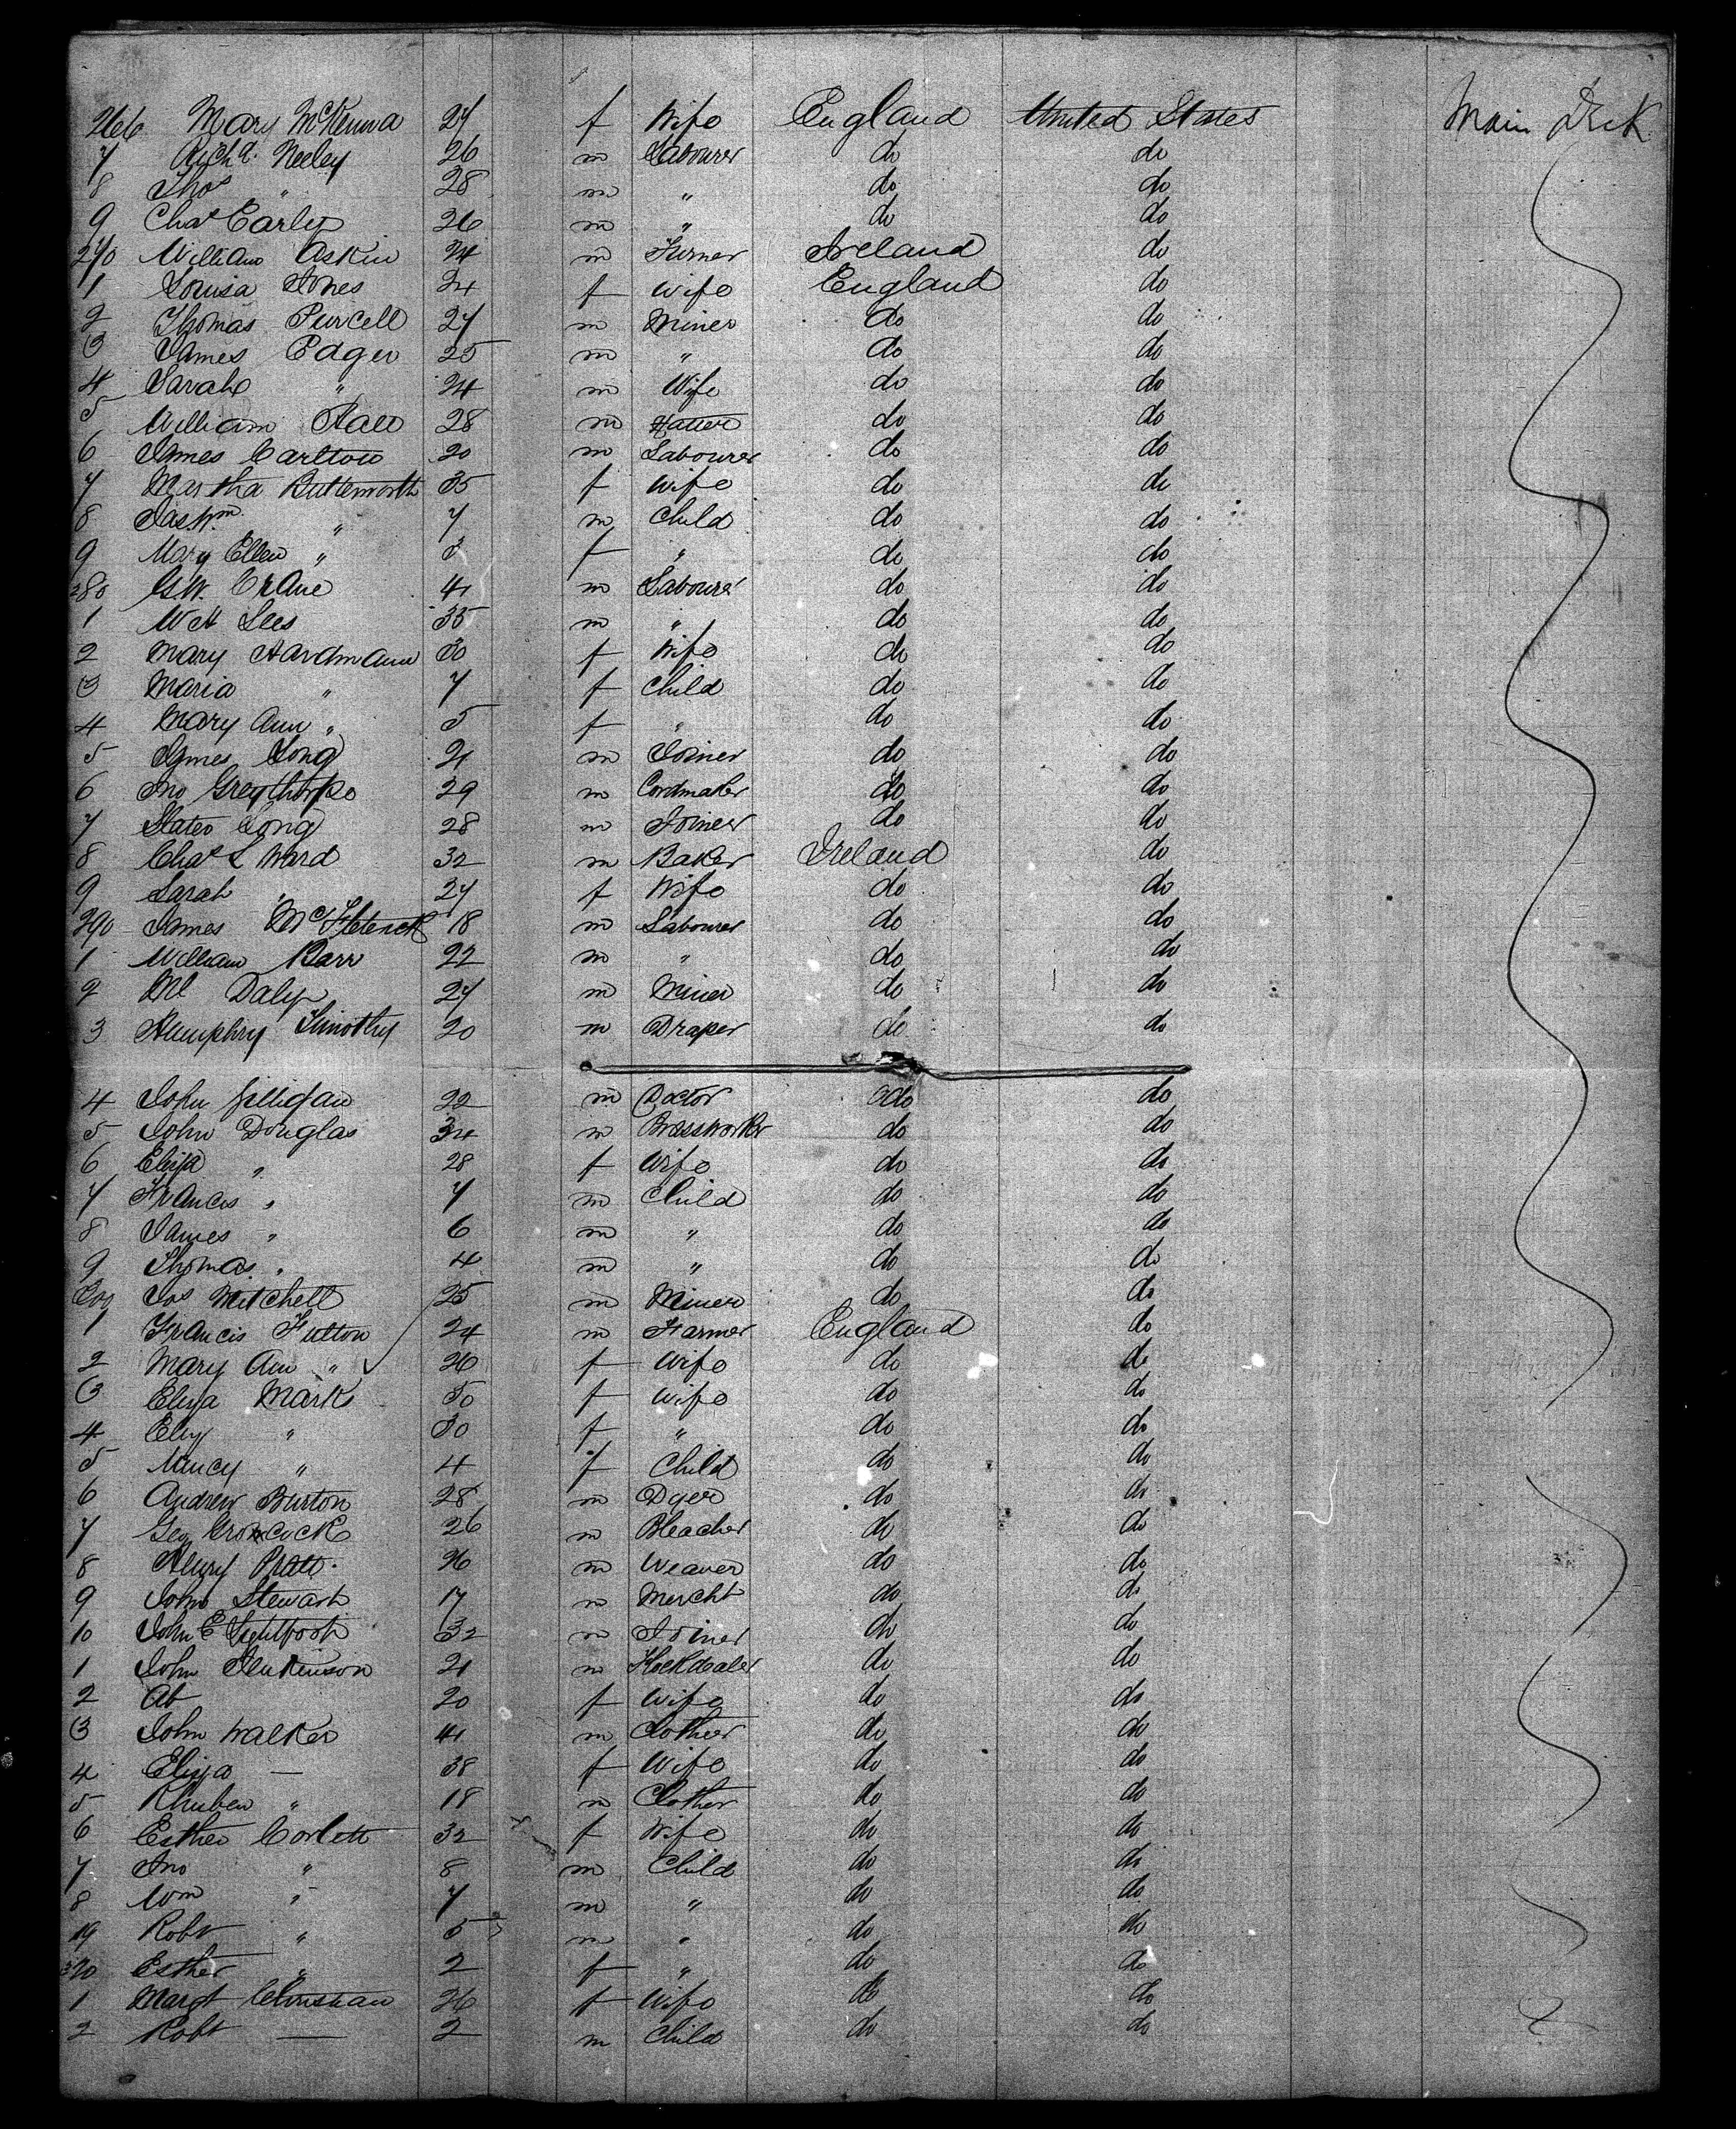 266 Mary McKenna 27 f Wife England United States Main Deck
7 Richd. Neeley 26 m Labourer do do
8 Thos " 28 m " do do
9 Chas Early 26 m " do do
270 William Askin 24 m Turner Ireland do
1 Louisa Jones 24 f Wife England do
2 Thomas Purcell 27 m Miner do do
3 James Edger 25 m " do do
4 Sarah " 24 m Wife do do
5 William Hall 28 m Hatter do do
6 James Carlton 20 m Labourer do do
7 Martha Butterworth 35 f Wife do do
8 Jas Wm " 7 m Child do do
9 Mary Ellen " 3 f " do do
280 Crane 41 m Labourer do do
1 Lees 35 m " do do
2 Mary Hardmann 30 f Wife do do
3 Maria " 7 f Child do do
4 Mary Ann " 5 f " do do
5 James Long 21 m Joiner do do
6 Jno Greythorpe 29 m Cordmaker do do
7 Slater Long 28 m Joiner do do
8 Chas L Ward 32 m Baker Ireland do
9 Sarah " 27 f Wife do do
290 James 18 m Labourer do do
1 William Barr 22 m " do do
2 Ml Daly 27 m Miner do do
3 Humphry Timothy 20 m Draper do do
4 John Gilligan 22 m Doctor do do
5 John Douglas 34 m Brassworker do do
6 Eliza " 28 f Wife do do
7 Francis " 7 m Child do do
8 James " 6 m " do do
9 Thomas " 4 m " do do
300 Jos Mitchell 25 m Miner do do
1 Francis Fulton 24 m Farmer England do
2 Mary Ann " 26 f Wife do do
3 Eliza Marks 50 f Wife do do
4 Eliz " 30 f " do do
5 Nancy " 4 f Child do do
6 Andrew Burton 28 m Dyer do do
7 Geo Groocock 26 m Bleacher do do
8 Henry Pratt 26 m Weaver do do
9 John Stewart 17 m Mercht do do
10 John E Lightfoot 32 m Joiner do do
1 John Jenkinson 21 m do do
2 Ab 20 f Wife do do
3 John Walker 41 m Clother do do
4 Eliza — 38 f Wife do do
5 Rhuben " 18 m Clother do do
6 Esther Corlett 32 f Wife do do
7 Jno " 8 m Child do do
8 Wm " 7 m " do do
19 Robt " 5 m " do do
320 Esther " 2 f " do do
1 Margt 26 f Wife do do
2 Robt — 2 m Child do do